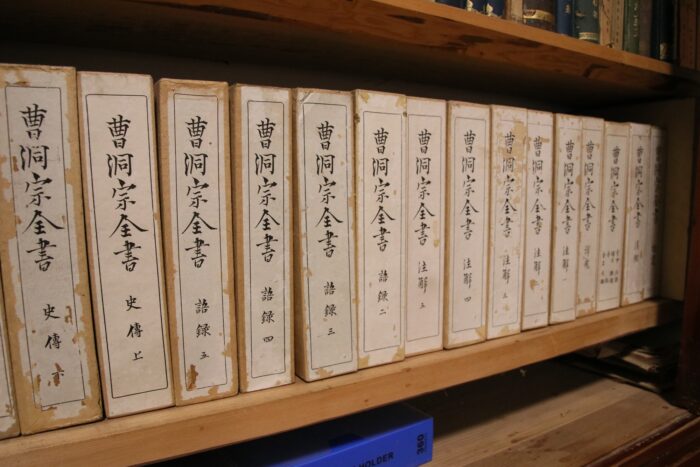 曹洞宗全書 史傳 下
曹洞宗全書 史傳 上
曹洞宗全書 語録 五
曹洞宗全書 語録 四
曹洞宗全書 語録 三
曹洞宗全書 語録 二
曹洞宗全書 注解 五
曹洞宗全書 注解 四
曹洞宗全書 注解 三
曹洞宗全書 注解
曹洞宗全書 注解
曹洞宗全書
曹洞宗全書
曹洞宗全書
HOLDER